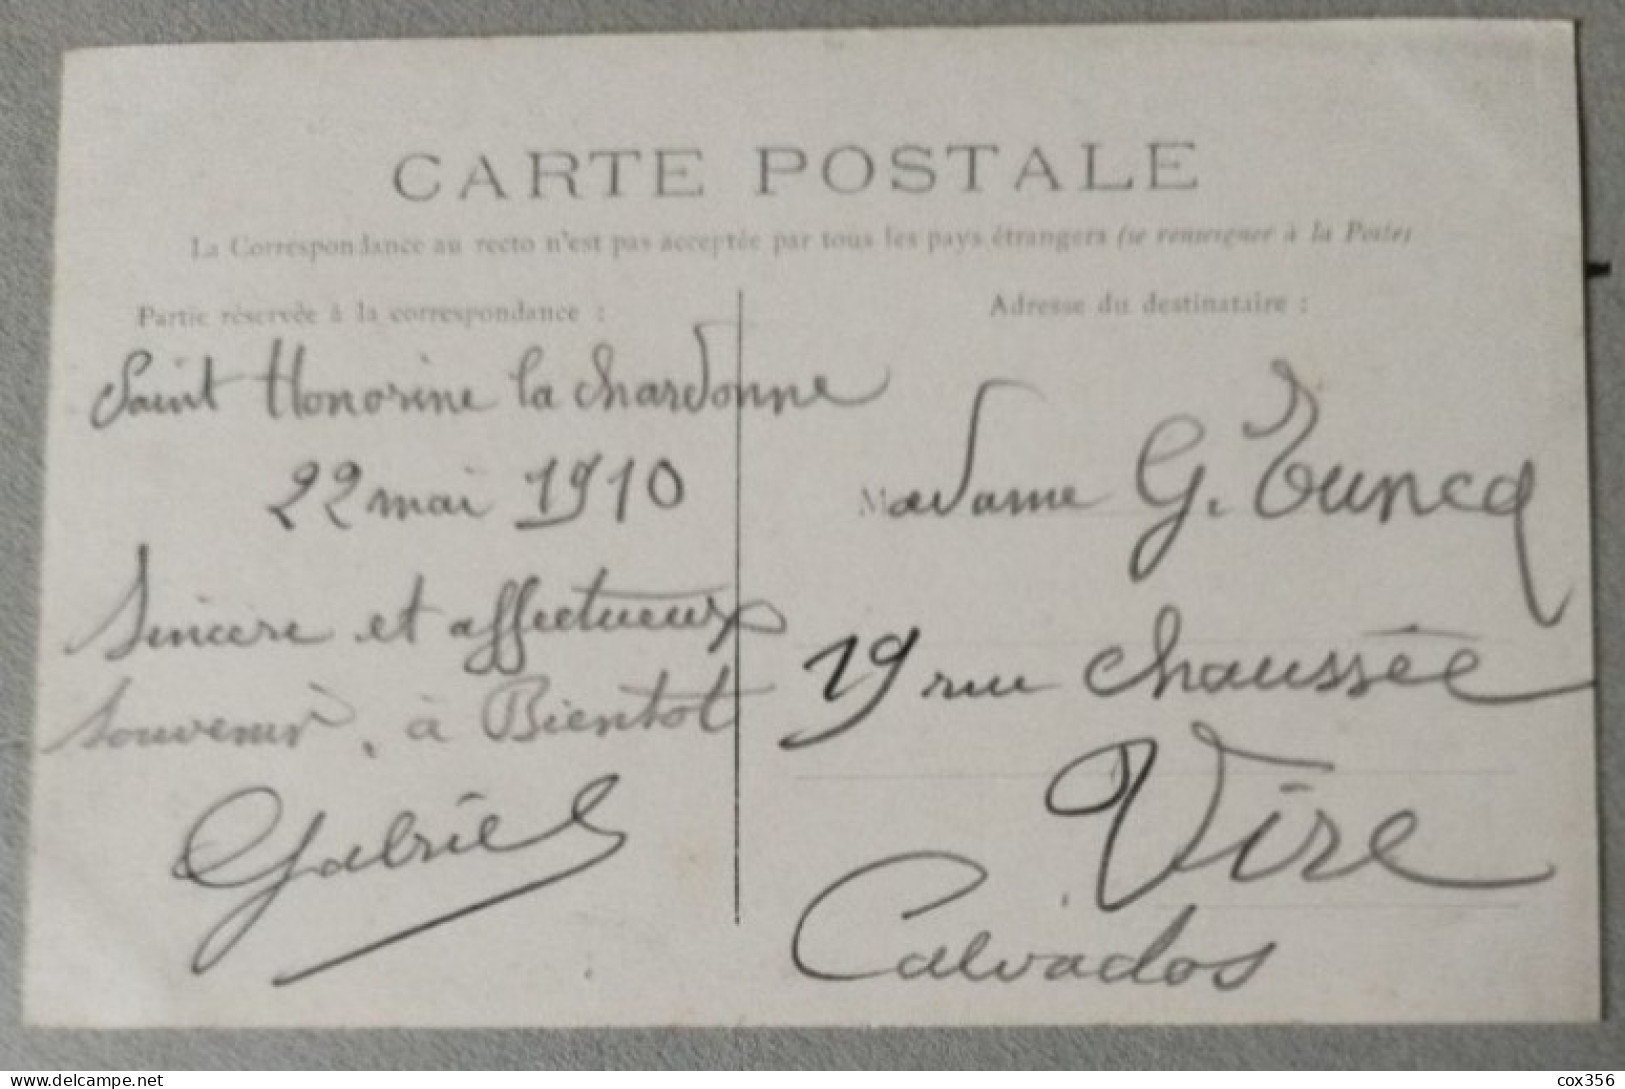 CARTE POSTALE
La Correspondance au recto n'est pas acceptée par tous les pays étrangers (se renseigner à la Poste)
Partie réservée à la correspondance :
Saint Honorine la chardonne
22 mai 1910
Sincère et affectueux
souvenir, à Bientot
Gabriel
Adresse du destinataire :
Madame G. Tuncq
19 rue chaussée
Vire
Calvados
delcampe.net
cox356